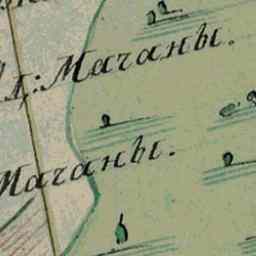 д: Мачаны.
Мачаны.